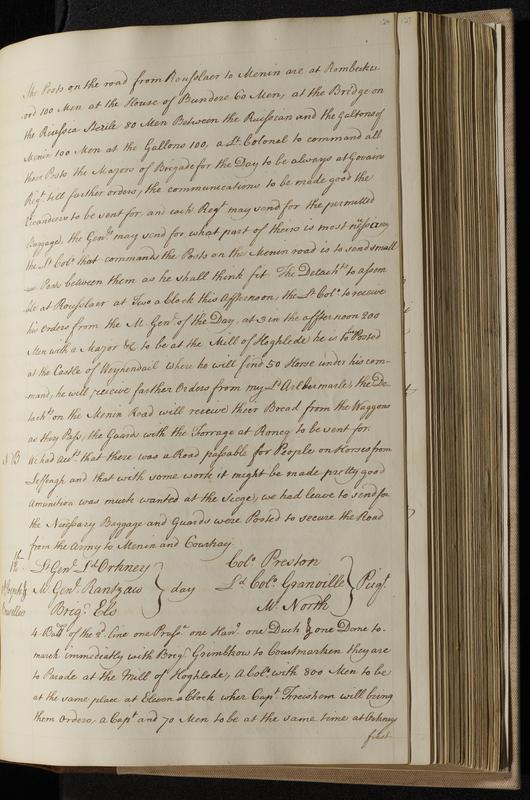 124 127
The Posts on the road from Rousslaer to Menin are at Rombeeke
and 100 Men at the House of Bundore Co Men, at the Bridge on
the Riussca Sterile 80 Men Between the Riusscan and the Gallons of
Menin 100 Men at the Gallons 100, a Lt Colonel to command all
those Posts the Majors of Brigade for the Day to be always at
Regt tell farther orders, the communications to be made good the
to be sent for, and each Regt may send for the permitted
Baggage, the Genls may send for what part of theirs is most nessacary
the Lt Colo that commands the Posts on the Menin road is to send small
Posts between them as he shall think fit The Detachts to assem
ble at Rousslaer at Two a clock this Affternoon, the Lt Colo to receive
his Orders from the M. Genl of the Day, at 3 in the affternoon 200
Men with a Major &c to be at the Mill of Hoghlede, he is to be Posted
at the Castle of Weynendail where he will find 50 Horse under his com-
mand, he will receive farther Orders from my Ld Arlbermarle, the De-
tachts on the Menin Road will receive their Bread from the Waggons
as they Pass, the Guards with the Forrage at Roncq to be sent for.
NB We had acctt that there was a Road passable for People on Horses from
Leffeagh and that with some work it might be made pretty good
Amunition was much wanted at the Siege, we had leave to send for
the Nessary Baggage and Guards were Posted to secure the Road
from the Army to Menin and Courtray.
Lt Genl Ld Orkney Colo Preston
M. Genl Rantzaw day Ld Colo Granville Piqt
Brigr Els Mr North
4 Battns of the 2d Line one Prussn one Hanr one Duch & one Dane to
march immediatly with Brigr Grumbkow to Courtmarken they are
to Parade at the Mill of Hoghlede, A Colo with 800 Men to be
at the same place at Eleven a Clock wher Capt will bring
them Orders, a Capt and 70 Men to be at the same time at Orkneys
first